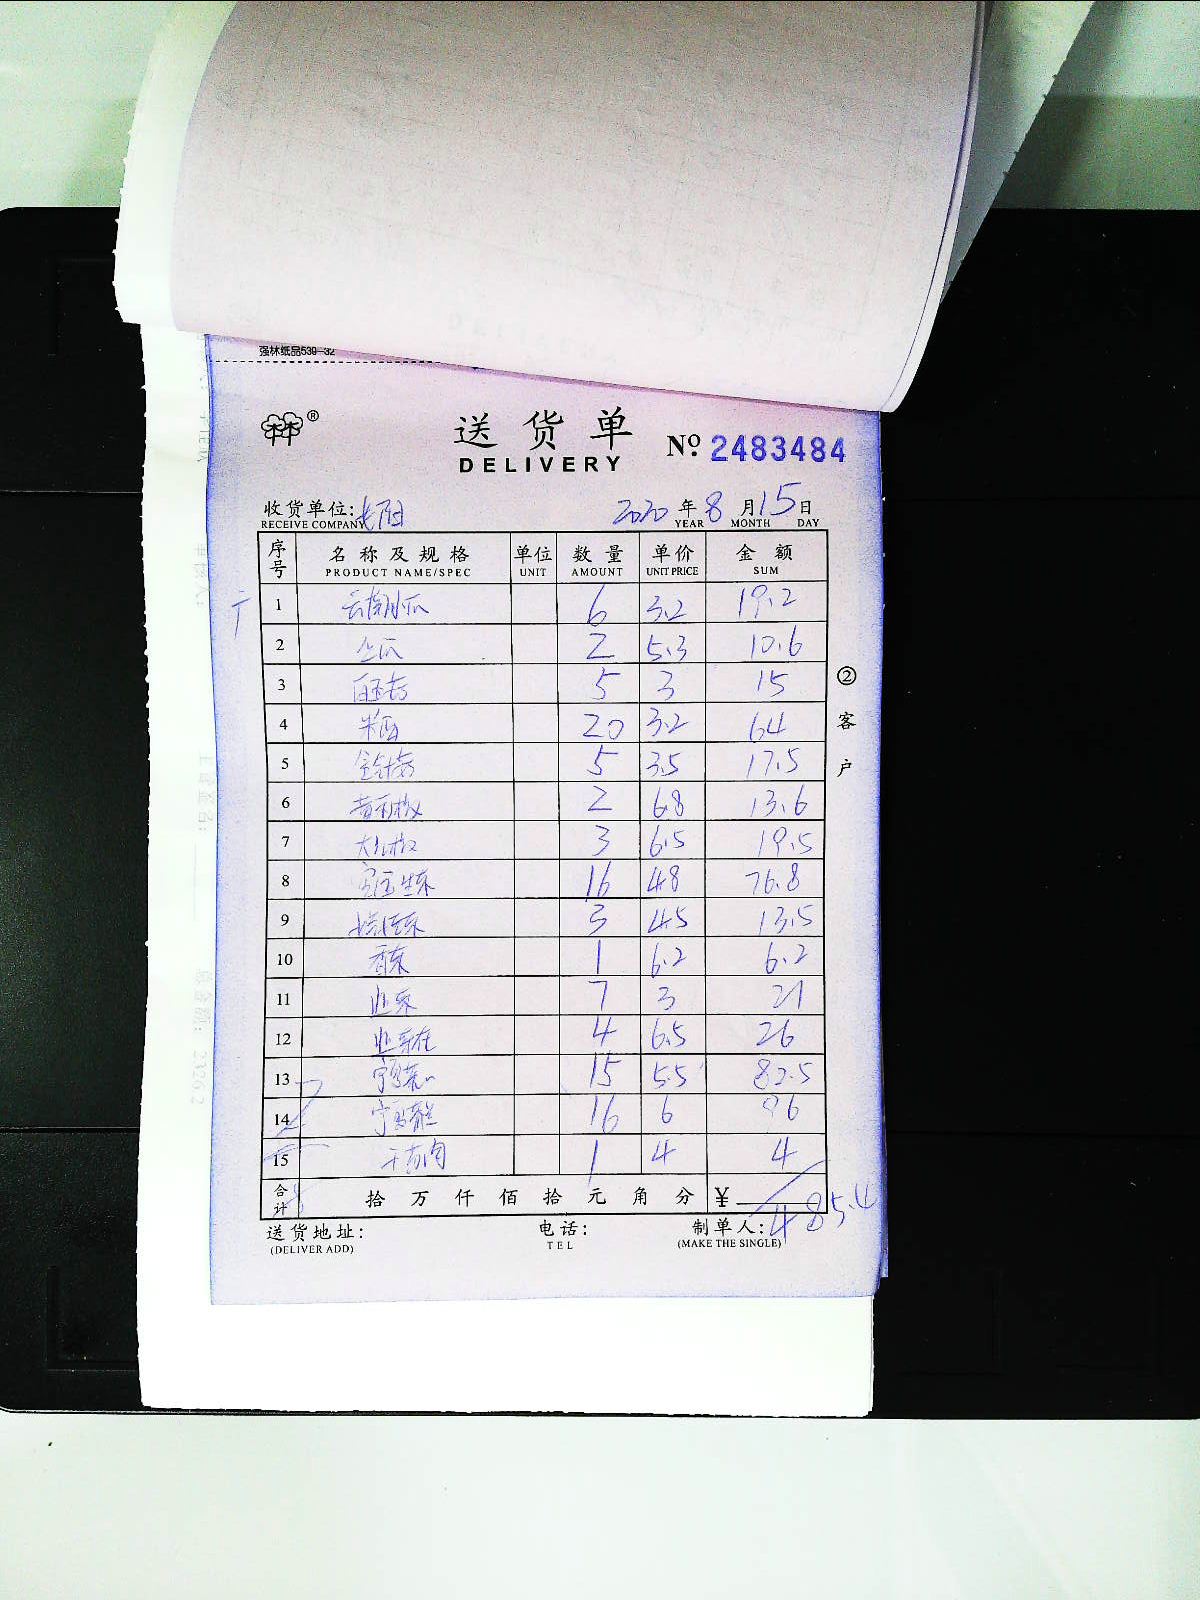 强林纸品539-32
林林®
送货单
DELIVERY
№ 2483484
收货单位:
2020年8月15日
RECEIVE COMPANY YEAR MONTH DAY
序号 名称及规格 单位 数量 单价 金额
PRODUCT NAME/SPEC UNIT AMOUNT UNIT PRICE SUM
1 云南小瓜 6 3.2 19.2
2 2 5.3 10.6
3 白玉菇 5 3 15
4 米酒 20 3.2 64
5 金针菇 5 3.5 17.5
6 黄彩椒 2 6.8 13.6
7 大红椒 3 6.5 19.5
8 16 4.8 76.8
9 3 4.5 13.5
10 香菜 1 6.2 6.2
11 韭菜 7 3 21
12 4 6.5 26
13 宁夏菜心 15 5.5 82.5
14 16 6 96
15 1 4 4
合计 拾 万 仟 佰 拾 元 角 分 ¥ 485.4
送货地址: 电话: 制单人:
(DELIVER ADD) TEL (MAKE THE SINGLE)
②客户